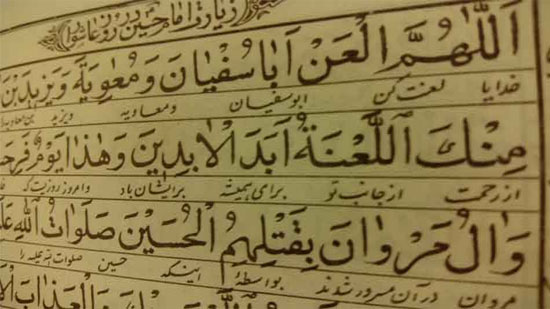 زیارت امام حسین در روز عاشورا
اَللّٰهُمَّ الْعَنْ اَبٰا سُفْیٰانَ وَ مُعٰوِیَةَ وَ یَزِیدَ بْنَ
خدایا لعنت کن ابوسفیان و معاویه و یزید
مِنْكَ اللَّعْنَةُ اَبَدَ الْاٰبِدِینَ وَ هٰذٰا یَوْمٌ فَرِحَ
از رحمت از جانب تو برای همیشه برایشان باد و امروز روزیست که
وَ اٰلُ مَرْوٰانَ بِقَتْلِهِمُ الْحُسَیْنَ صَلَوٰاتُ اللّٰهِ عَلَ
مروان در آن مسرور شدند بواسطهٔ اینکه حسین صلوات الله علیه را
اللَّعْنَ وَ الْعَذٰابَ الْاَ